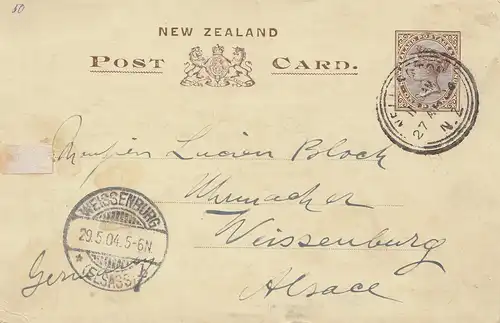 50
NEW ZEALAND
POST CARD.
27 AP 04
N.Z
Lucien Bloch
Uhrmacher
Weissenburg
WEISSENBURG
29.5.04.5-6N
* (ELSASS) *
Germany
Alsace